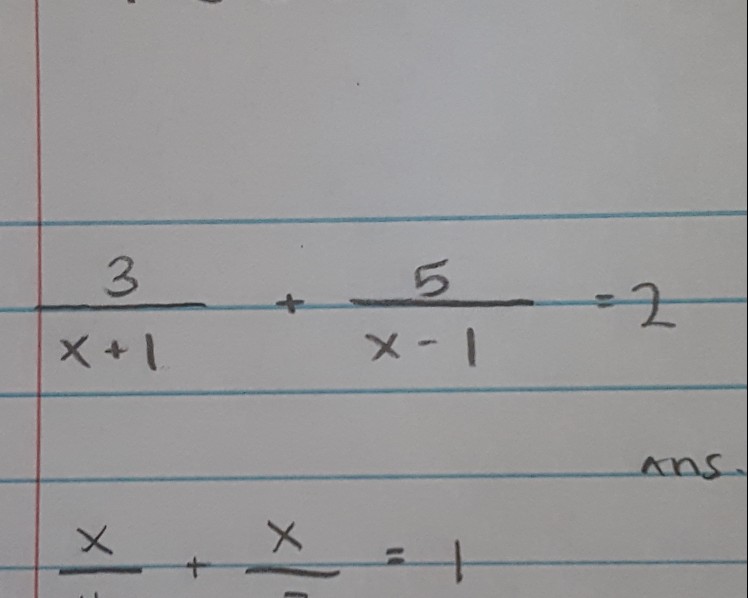 3/(x+1) + 5/(x-1) = 2
Ans.
x + x = 1